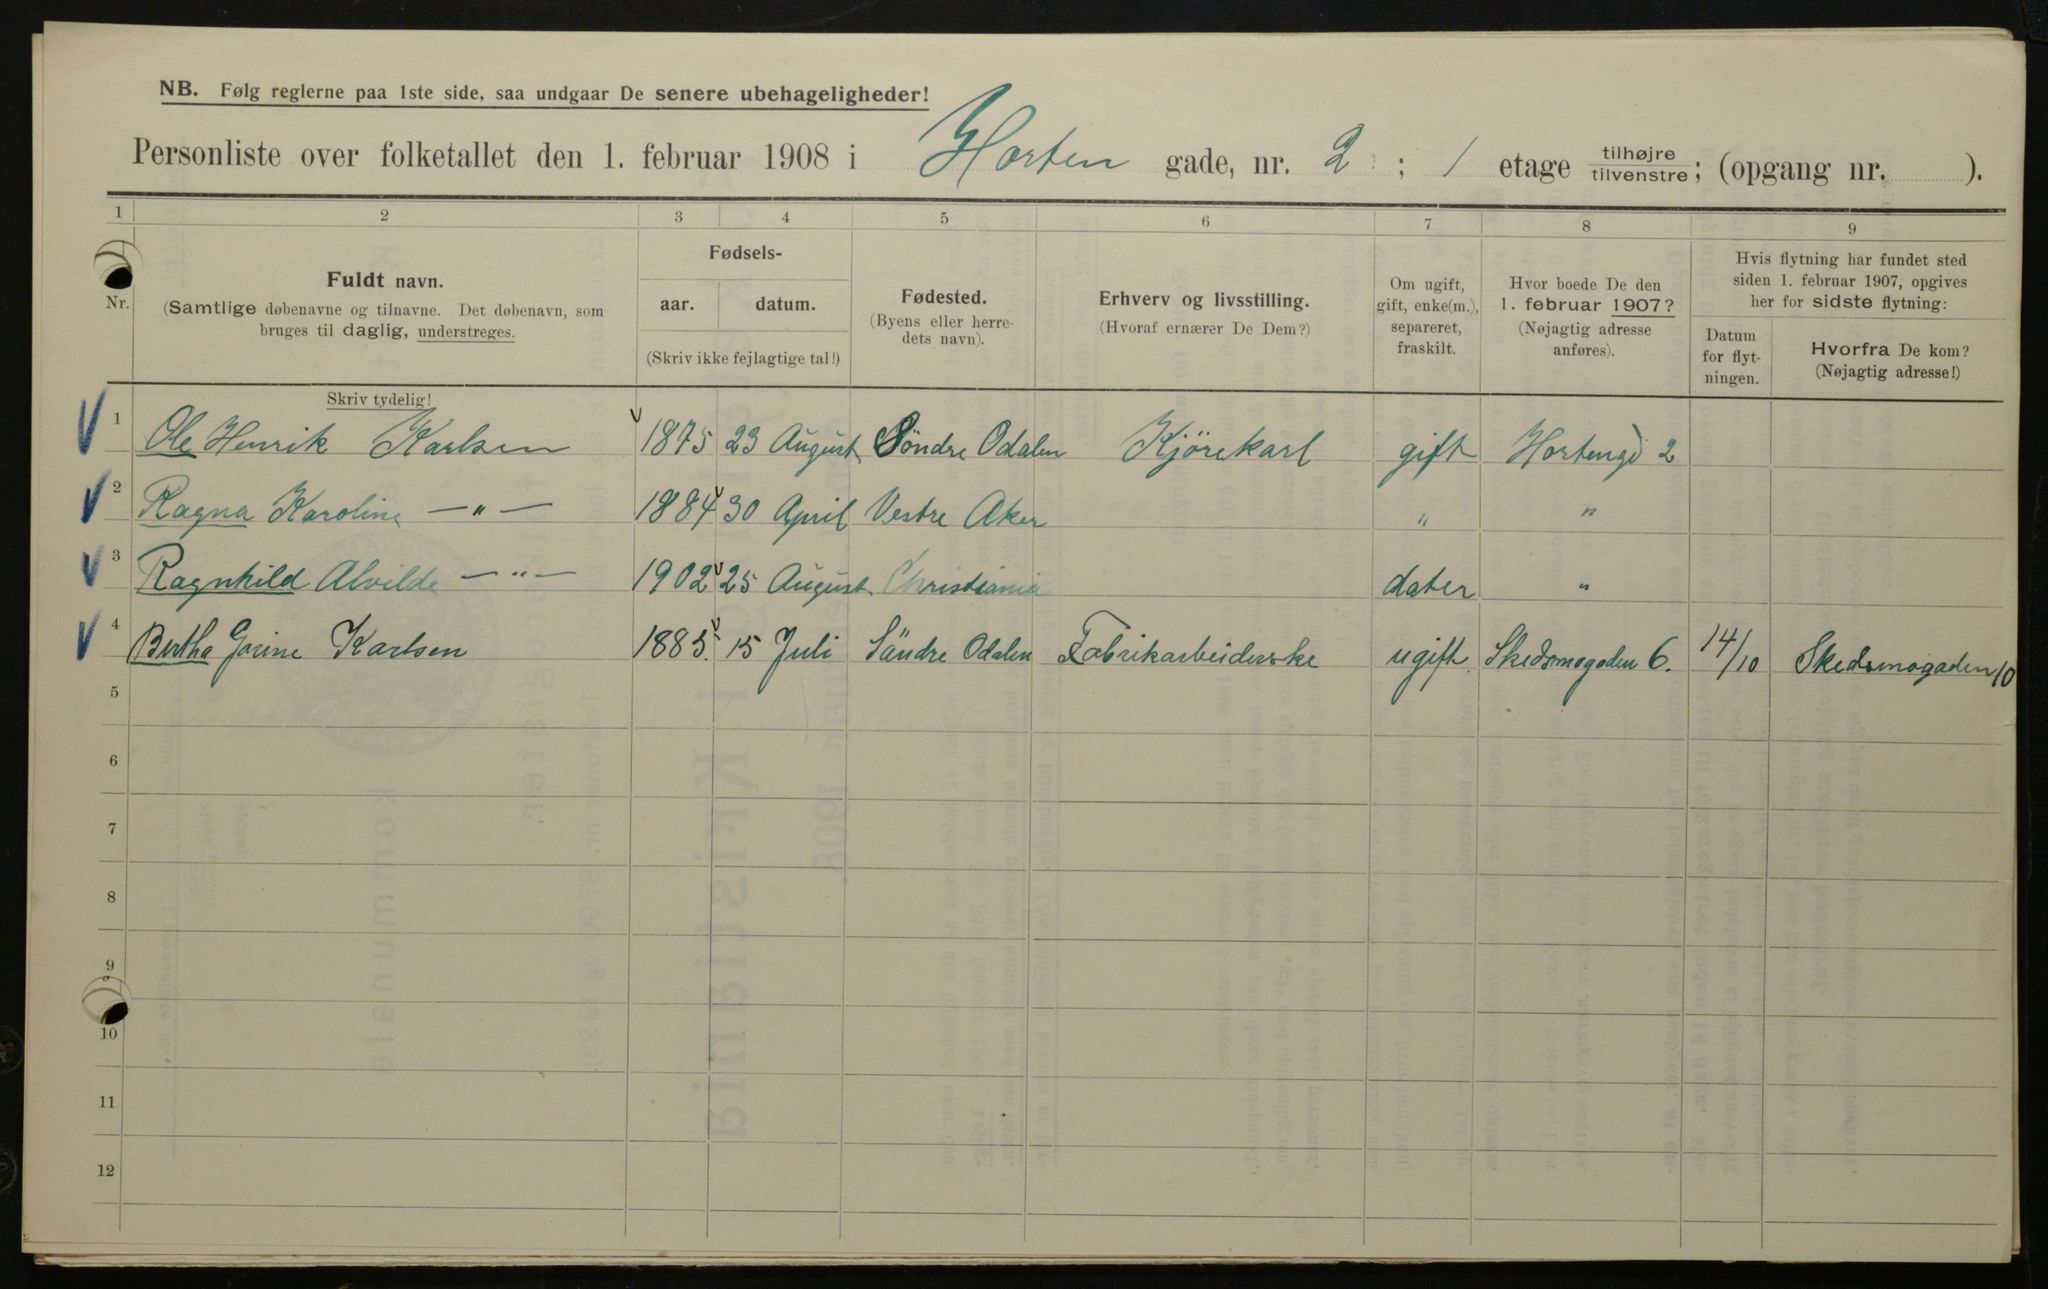 NB. Følg reglerne paa 1ste side, saa undgaar De senere ubehageligheder!
Personliste over folketallet den 1. februar 1908 i Horten gade, nr. 2 ; 1 etage tilhøjre / tilvenstre; (opgang nr. ).
1 2 3 4 5 6 7 8 9
Nr.
Fuldt navn.
(Samtlige døbenavne og tilnavne. Det døbenavn, som
bruges til daglig, understreges.
Skriv tydelig!
Fødsels-
aar. datum.
(Skriv ikke fejlagtige tal!)
Fødested.
(Byens eller herre-
dets navn).
Erhverv og livsstilling.
(Hvoraf ernærer De Dem?)
Om ugift,
gift, enke(m.),
separeret,
fraskilt.
Hvor boede De den
1. februar 1907?
(Nøjagtig adresse
anføres).
Hvis flytning har fundet sted
siden 1. februar 1907, opgives
her for sidste flytning:
Datum
for flyt-
ningen.
Hvorfra De kom?
(Nøjagtig adresse!)
1 Ole Henrik Karlsen 1875 23 August Söndre Odalen Kjörekarl gift Hortengd 2
2 Ragna Karoline — " — 1884 30 April Vestre Aker " "
3 Ragnhild Alvilde — " — 1902 25 August Christiania dater "
4 Bertha Gorine Karlsen 1885. 15 Juli Söndre Odalen Fabrikarbeiderske ugift. Skedsmogaden 6. 14/10 Skedsmogaden 10
5
6
7
8
9
10
11
12